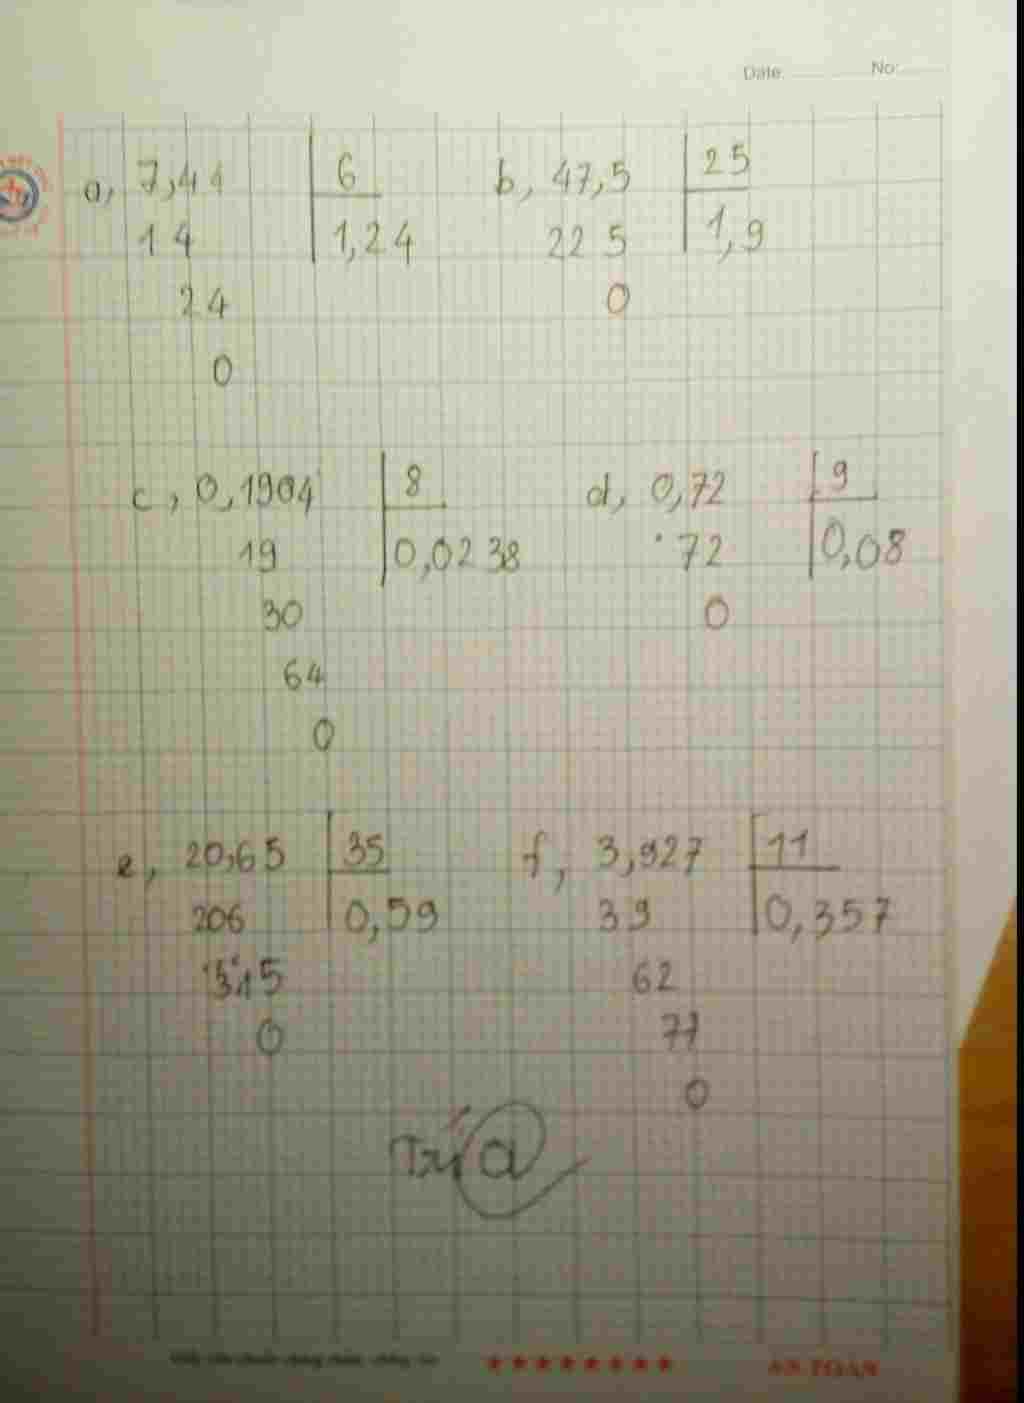 Date: No:
a, 7,44 6 b, 47,5 25
14 1,24 225 1,9
24 0
0
c, 0,1904 8 d, 0,72 9
19 0,0238 72 0,08
30 0
64
0
e, 20,65 35 f, 3,927 11
206 0,59 39 0,357
315 62
0 77
0
a
AN TOÀN